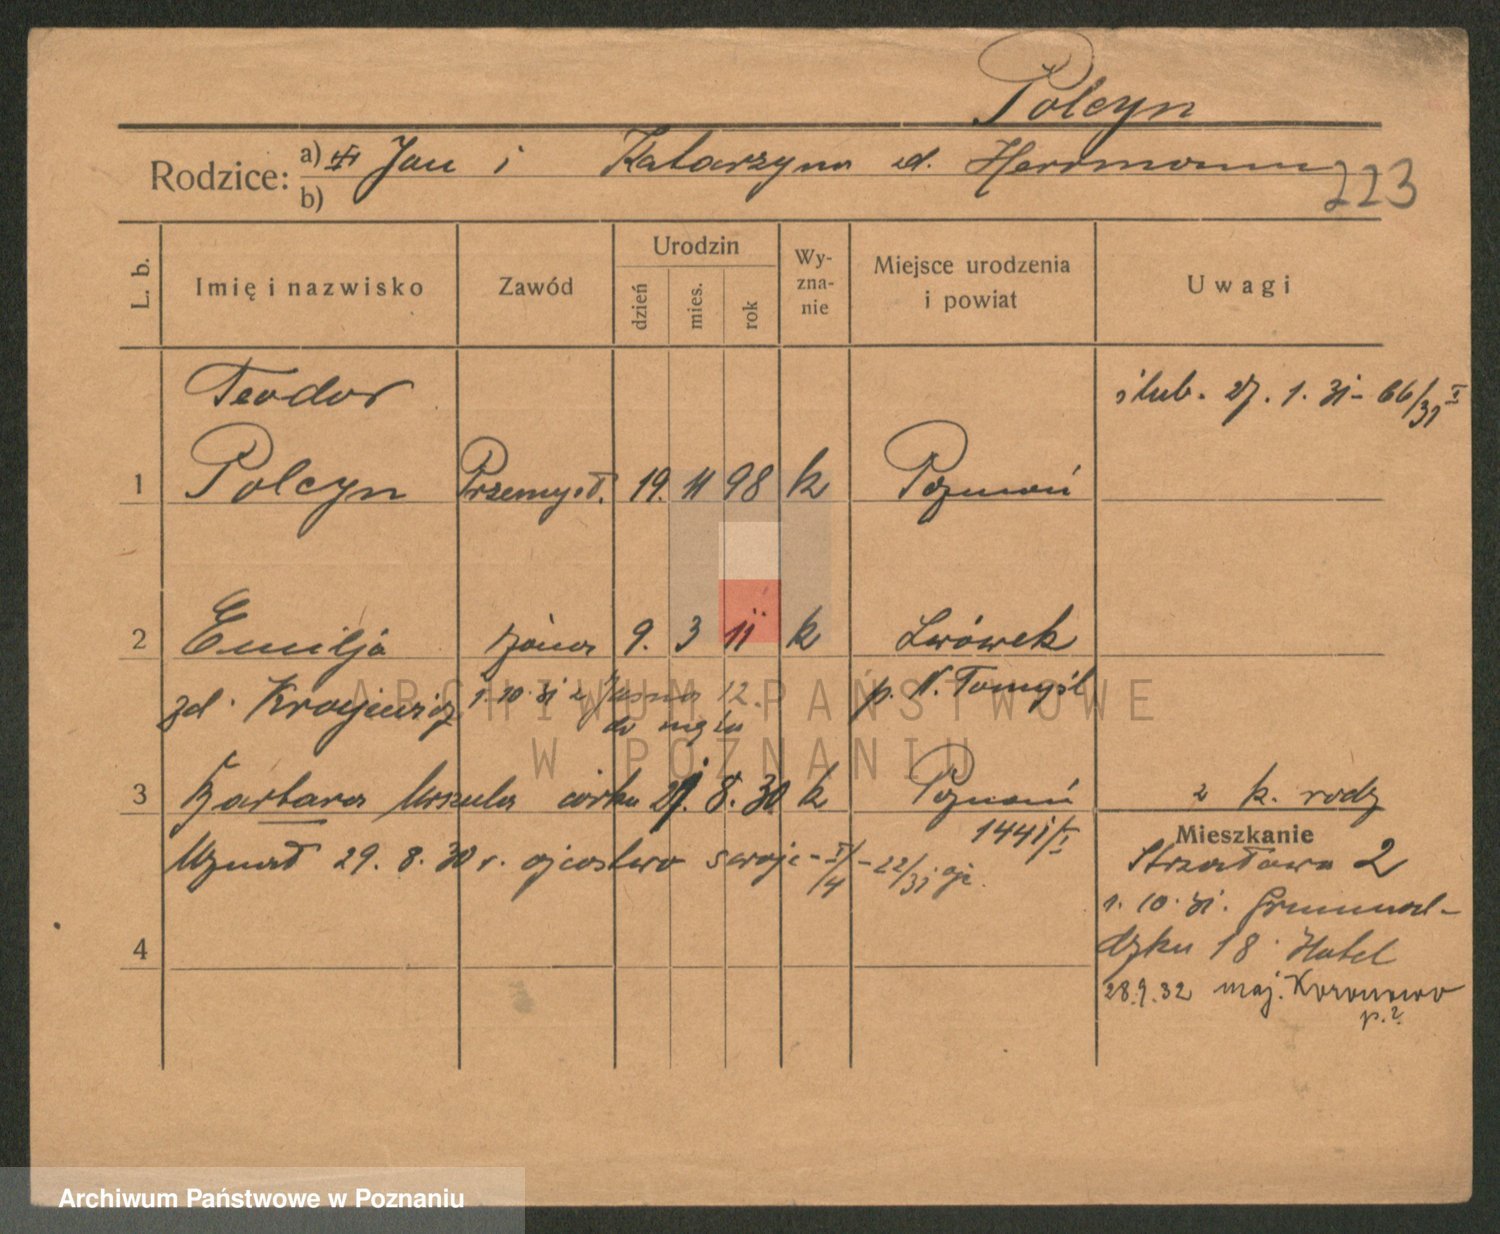 Polcyn
Rodzice: a) Jan i Katarzyna zd. Herrmann
b)
223
L. b. Imię i nazwisko Zawód Urodzin dzień mies. rok Wy-zna-nie Miejsce urodzenia i powiat Uwagi
Teodor ślub. 27. 1. 31 - 66/31 I
1 Polcyn Przemysł. 19. 11 98 k Poznań
2 Emilja żona 9. 3 11 k Lwówek
zd. Krajewicz 1. 10. 31 z Jasna 12. p. N. Tomyśl
do męża
3 Barbara Urszula córka 29. 8. 30 k Poznań z k. rodz
1441/I
Uznał 29. 8. 30 r. ojcostwo swoje - I/4 - 22/31 ojc.
Mieszkanie
Strzałowa 2
1. 10. 31. Grunwal-
4 dzka 18 Hotel
28.9.32 maj. Koronowo
p. ?
ARCHIWUM PAŃSTWOWE
W POZNANIU
Archiwum Państwowe w Poznaniu